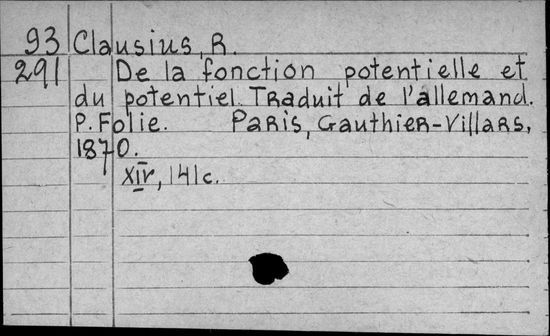 93 Clausius, R.
291 De la fonction potentielle et
du potentiel. Traduit de l'allemand.
P. Folie. Paris, Gauthier-Villars,
1870.
XIV, 141 c.